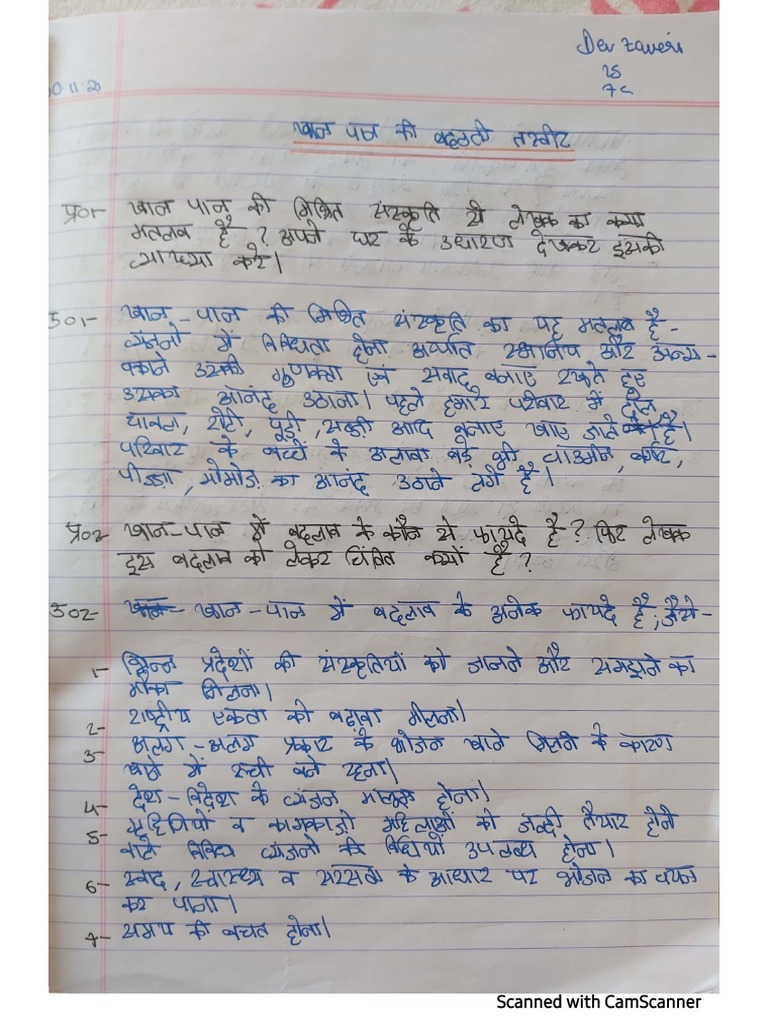 Dev Zaveri
25
7C
0-11-20
खान पान की बदलती तस्वीर
प्र०१- खान पान की मिश्रित संस्कृति से लेखक का क्या
मतलब है ? अपने घर के उधारण देखकर इसकी
व्याख्या करे।
उ०१- खान-पान की मिश्रित संस्कृति का यह मतलब है-
व्यंजनो में विविधता होना अर्थात स्थानीय और अन्य-
उसकी गुणवत्ता एवं सवाद बनाए रखते हुए
उसका आनंद उठाना। पहले हमारे परिवार में
चावल, रोटी, पूड़ी, सब्ज़ी आद बनाए खाए जाते है।
परिवार के बच्चे के अलावा बड़े भी चाउमीन,
पीज़्ज़ा, मोमोज़ का आनंद उठाने लगे है।
प्र०२- खान-पान में बदलाव के कौन से फायदे है? फिर लेखक
इस बदलाव को लेकर चिंतित क्यों है ?
उ०२- खान-पान में बदलाव के अनेक फायदे है, जैसे-
1- भिन्न प्रदेशों की संस्कृतियों को जानने और समझने का
मौका मिलना।
2- राष्ट्रीय एकता को बढ़ावा मीलना।
3- अलग-अलग प्रकार के भोजन खाने मिलने के कारण
खाने में रुची बने रहना।
4- देश-विदेश के व्यंजन मालूम होना।
5- गृहिणियों व कामकाजी महिलाओं को जल्दी तैयार होने
वाले विविध व्यंजनो की विधियाँ उपलब्ध होना।
6- स्वाद, स्वास्थ्य व सरसता के आधार पर भोजन का चयन
कर पाना।
7- समय की बचत होना।
Scanned with CamScanner